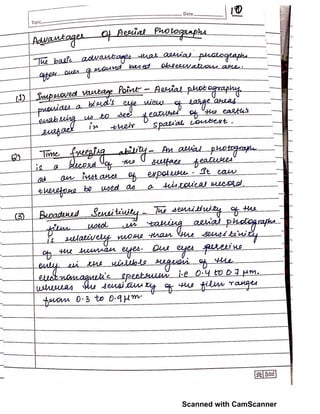 Topic
Date
10
Advantages of Aerial Photographs
The basic advantages that aerial photographs
offer over ground based observation are.
(1) Improved Vantage Point - Aerial photography
provides a bird's eye view of large areas
enabling us to see features of the earth's
surface in their spatial context.
2) Time freezing ability - An aerial photograph
is a record of the surface features
at an instance of exposure. It can
therefore be used as a historical record.
(3) Broadened Sensitivity - The sensitivity of the
film used in taking aerial photographs
is relatively more than the sensitivity
of the human eyes. Our eyes perceive
only in the visible region of the
electromagnetic spectrum i.e 0.4 to 0.7 µm.
whereas the sensitivity of the film ranges
from 0.3 to 0.9 µm
Scanned with CamScanner